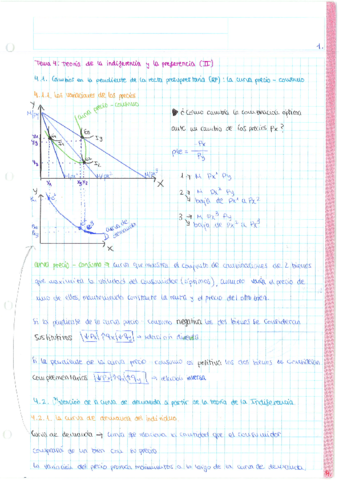 1.
Tema 4: Teoría de la indiferencia y la preferencia (II)
4.1. Cambios en la pendiente de la recta presupuestaria (RP): la curva precio - consumo
4.1.1. Las variaciones de los precios
Y
curva precio - consumo
¿Cómo cambia la combinación óptima
ante un cambio de los precios Px?
Px
Py
1 → M Px¹ Py
2 → M Px² Py
baja de Px¹ a Px²
3 → M Px³ Py
X
Y
curva de demanda
X
curva precio - consumo → curva que muestra el conjunto de combinaciones de 2 bienes
que maximizan la utilidad del consumidor (óptimos), cuando varía el precio de
uno de ellos, manteniendo constante la renta y el precio del otro bien.
Si la pendiente de la curva precio consumo negativa los dos bienes se consideran
sustitutivos → relación directa
Si la pendiente de la curva precio consumo es positiva los dos bienes se consideran
complementarios → relación inversa
4.2. Obtención de la curva de demanda a partir de la teoría de la Indiferencia
4.2.1. La curva de demanda del individuo
Curva de demanda → curva que relaciona la cantidad que el consumidor
compraría de un bien con su precio
La variación del precio provoca movimientos a lo largo de la curva de demanda.